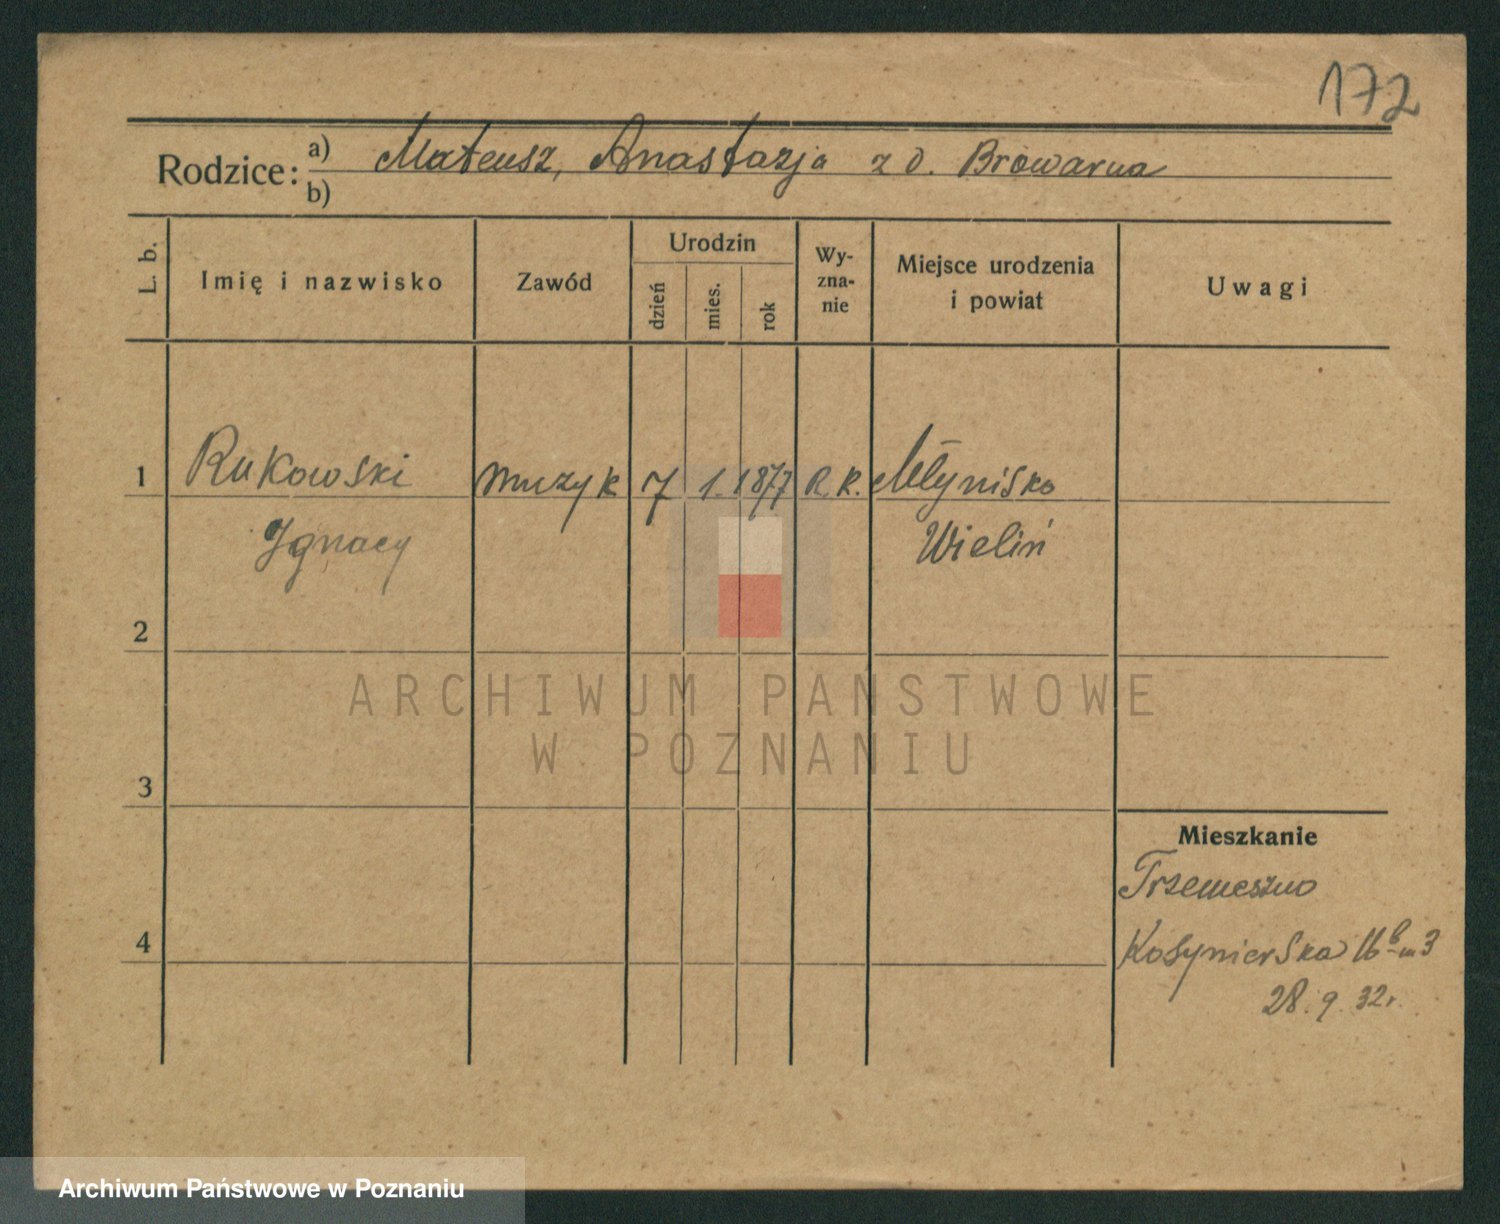 172
Rodzice: a) Mateusz, Anastazja z d. Browarna
b)
L. b.
Imię i nazwisko
Zawód
Urodzin
dzień
mies.
rok
Wy-
zna-
nie
Miejsce urodzenia
i powiat
Uwagi
1 Rukowski muzyk 7 1. 1877 R. K. Młynisko
Ignacy Wieliń
2
3
4
ARCHIWUM PAŃSTWOWE
W POZNANIU
Mieszkanie
Trzemeszno
Kosynierska 16 b m 3
28. 9. 32 r.
Archiwum Państwowe w Poznaniu